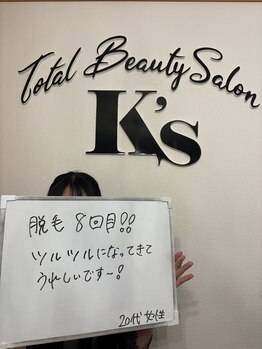 Total Beauty Salon
K's
脱毛 8回目!!
ツルツルになってきて
うれしいです〜!
20代 女性